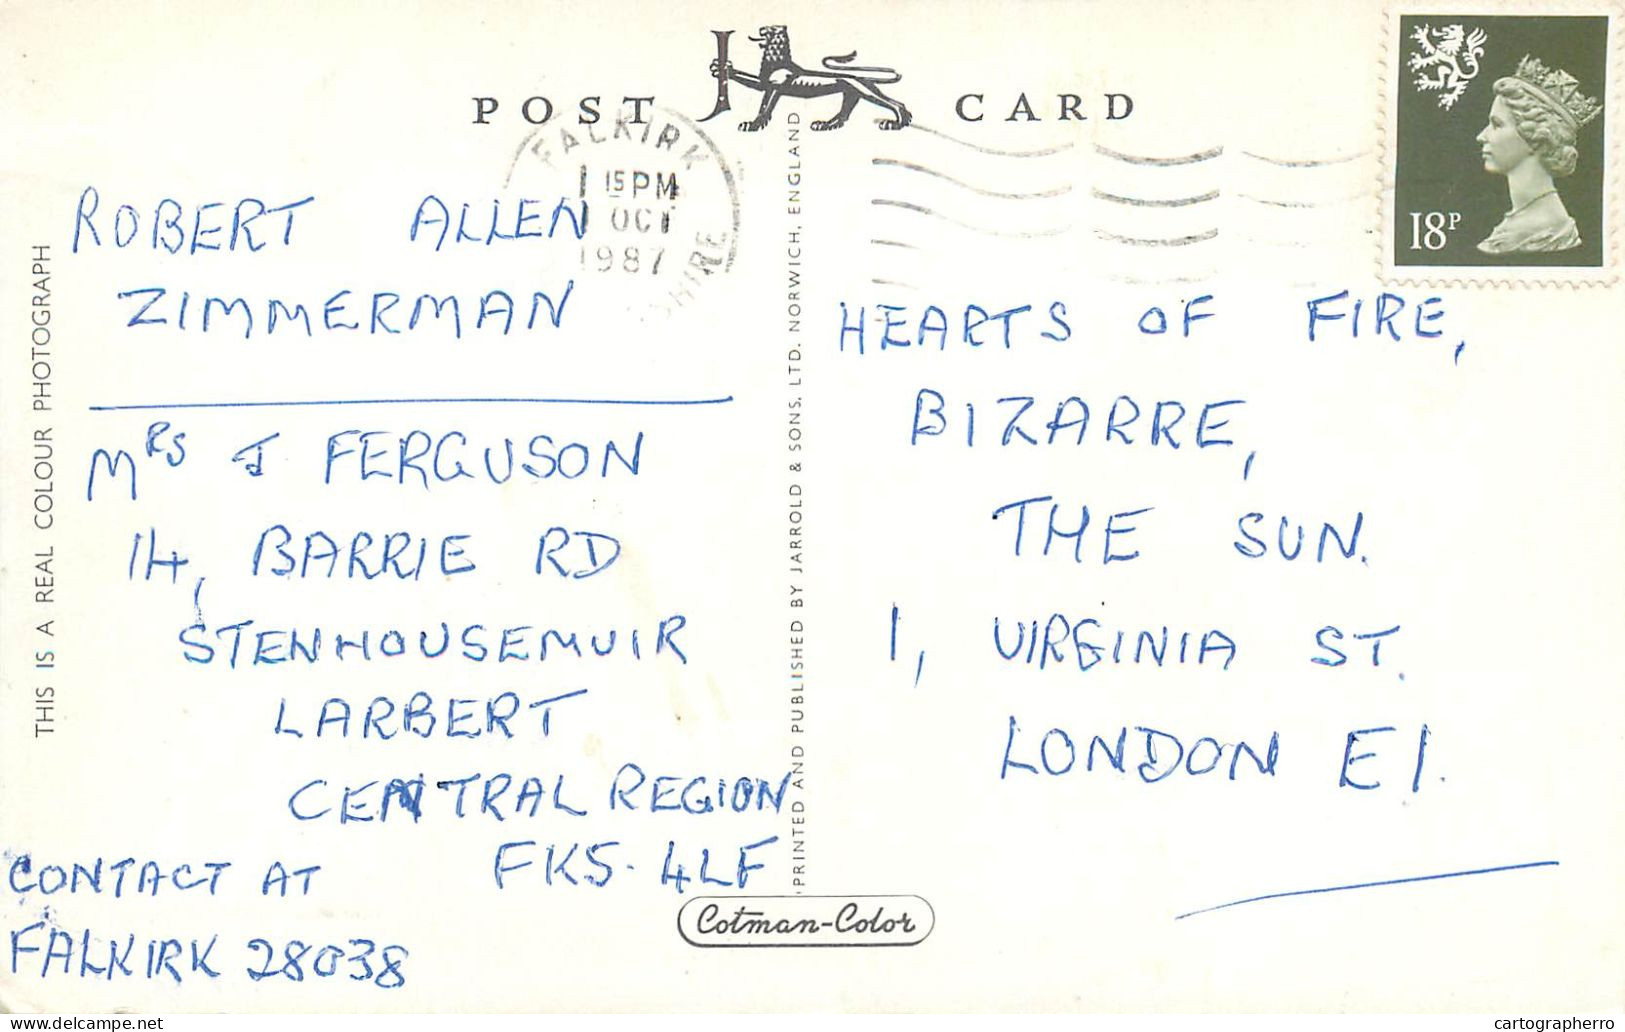 POST CARD
FALKIRK
15 PM
OCT
1987
SHIRE
18P
ROBERT ALLEN
ZIMMERMAN
MRS J FERGUSON
14, BARRIE RD
STENHOUSEMUIR
LARBERT
CENTRAL REGION
FK5. 4LF
CONTACT AT
FALKIRK 28038
HEARTS OF FIRE,
BIZARRE,
THE SUN.
1, VIRGINIA ST.
LONDON E1.
THIS IS A REAL COLOUR PHOTOGRAPH
PRINTED AND PUBLISHED BY JARROLD & SONS, LTD. NORWICH, ENGLAND
Cotman-Color
delcampe.net
cartographerro